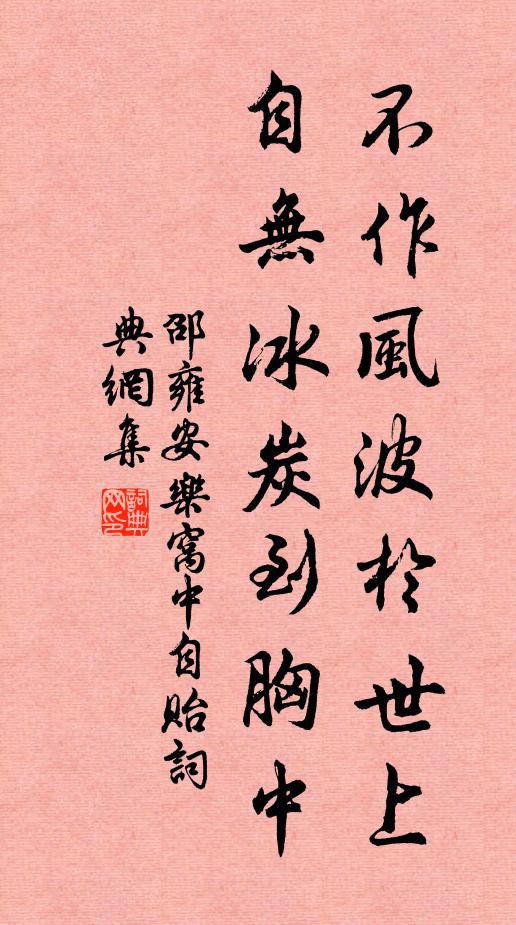 不作風波於世上
自無冰炭到胸中
邵雍安樂窩中自貽詞
典網集
詞典網印